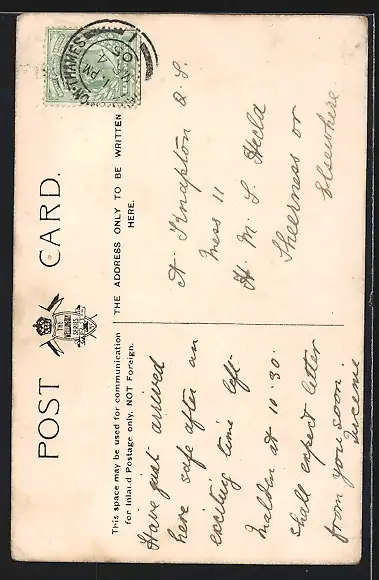 POST CARD.
THE WELLINGTON SERIES
This space may be used for communication
for Inland Postage only, NOT Foreign.
THE ADDRESS ONLY TO BE WRITTEN
HERE.
ON-THAMES
PM
4
05
Have just arrived
here safe after an
exciting time left
Malden at 10.30.
Shall expect letter
from you soon.
A Knapton O.S.
Mess 11
H. M. S. Hecla
Sheerness or
Elsewhere